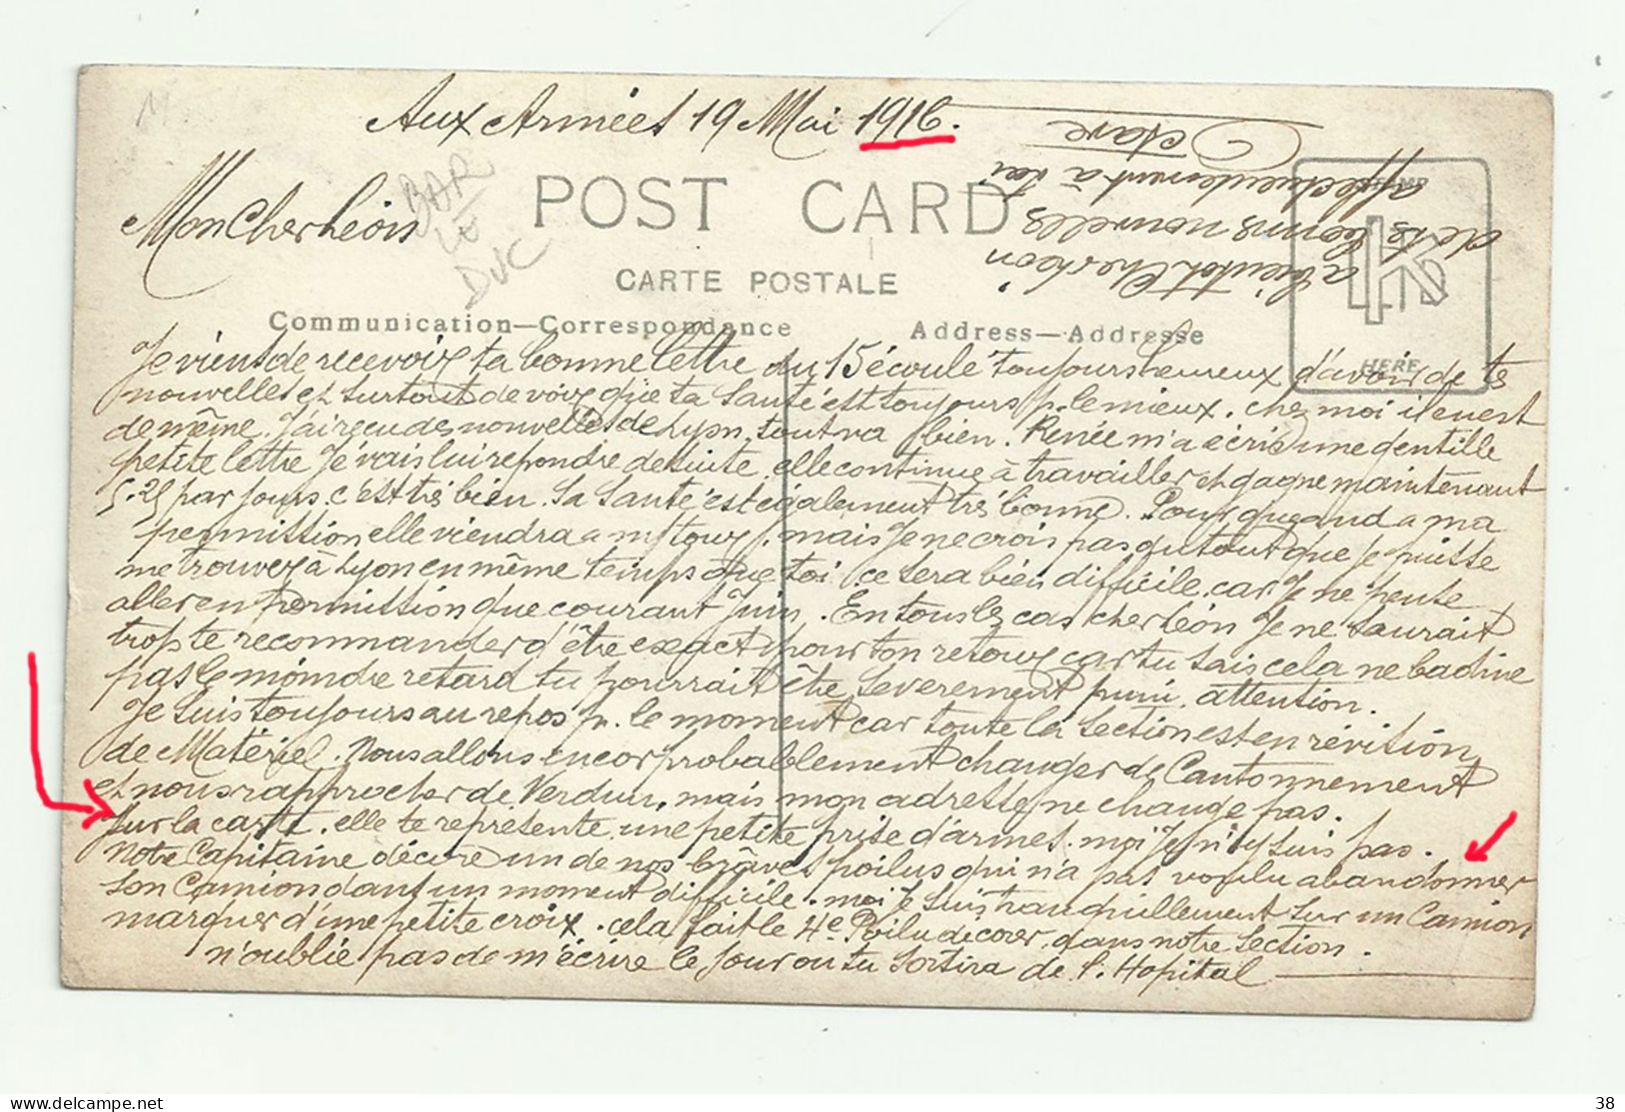 Aux Armées 19 Mai 1916.
Mon Cher Léon
BAR
LE
DUC
POST CARD
CARTE POSTALE
Communication—Correspondance
Address—Addresse
HERE
Je viens de recevoir ta bonne lettre du 15 écoulé toujours heureux d'avoir de tes
nouvelles et surtout de voir que ta santé est toujours p. le mieux. chez moi il en est
de même. J'ai reçu des nouvelles de Lyon, tout va bien. Renée m'a écris une gentille
petite lettre Je vais lui repondre desuite, elle continue à travailler et gagne maintenant
5.25 par jours. c'est très bien. Sa santé est également très bonne. Pour quand a ma
permission elle viendra a mon tour, mais je ne crois pas du tout que je puisse
me trouver à Lyon en même temps que toi ce sera bien difficile, car Je ne pense
aller en permission que courant Juin. En tous les cas cher Léon Je ne saurait
trop te recommander d'être exact pour ton retour car tu sais cela ne badine
pas le moindre retard tu pourrait être severement puni. attention.
Je suis toujours au repos p. le moment car toute la section est en révision
de Matériel. Nous allons encor probablement changer de Cantonnement
et nous rapprocher de Verdun, mais mon adresse ne change pas.
Sur la carte. elle te représente une petite prise d'armes. moi je n'y suis pas.
Notre Capitaine décore un de nos brâves poilus qui n'a pas voulu abandonner
son Camion dans un moment difficile. moi Je suis tranquillement sur un Camion
marquer d'une petite croix. cela fait le 4e Poilu décorer, dans notre section.
n'oublie pas de m'écrire le jour ou tu sortira de l'Hopital
a bientot Cher Léon
de tes bonnes nouvelles
affectueusement à toi
Octave
38